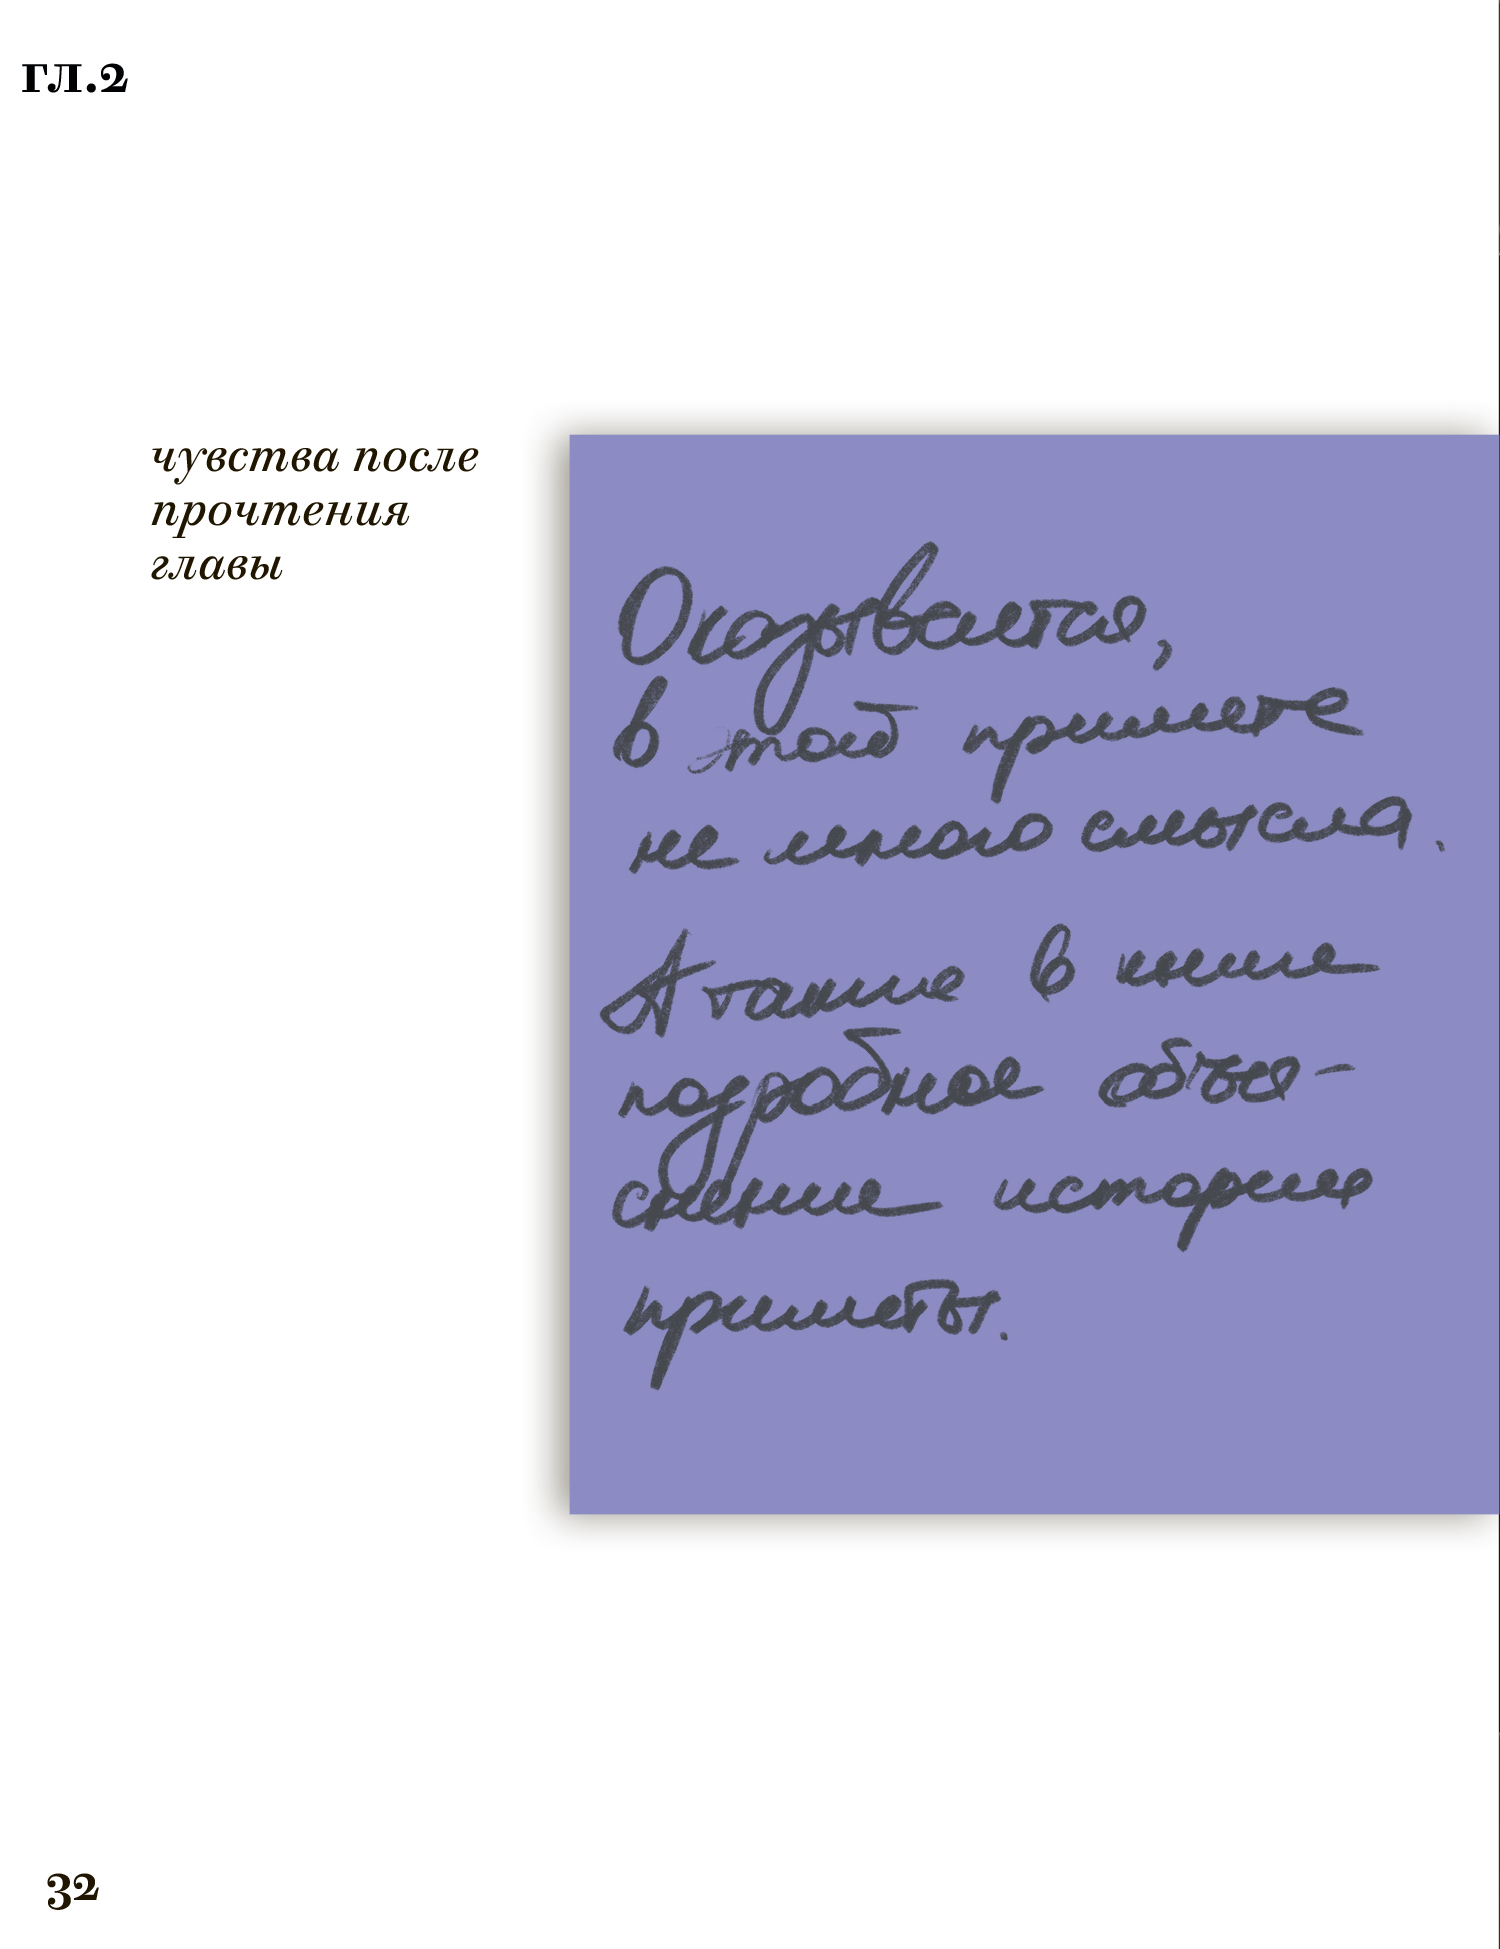 гл.2
чувства после
прочтения
главы
Оказывается,
в этой примете
не много смысла.
А также в книге
подробное объя-
снение истории
приметы.
32